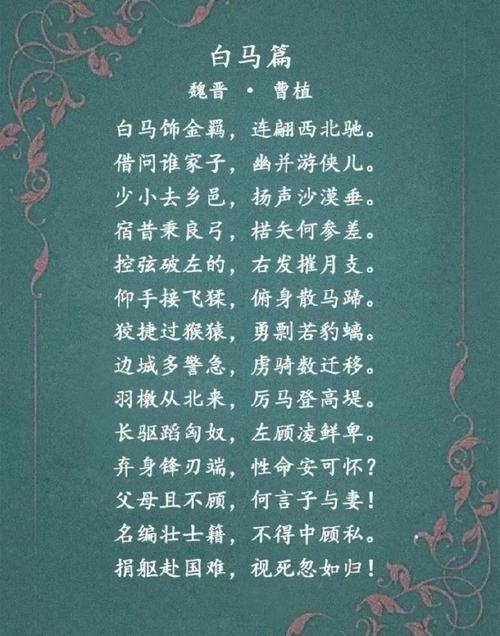 白马篇
魏晋 • 曹植
白马饰金羁，连翩西北驰。
借问谁家子，幽并游侠儿。
少小去乡邑，扬声沙漠垂。
宿昔秉良弓，楛矢何参差。
控弦破左的，右发摧月支。
仰手接飞猱，俯身散马蹄。
狡捷过猴猿，勇剽若豹螭。
边城多警急，虏骑数迁移。
羽檄从北来，厉马登高堤。
长驱蹈匈奴，左顾凌鲜卑。
弃身锋刃端，性命安可怀？
父母且不顾，何言子与妻！
名编壮士籍，不得中顾私。
捐躯赴国难，视死忽如归！